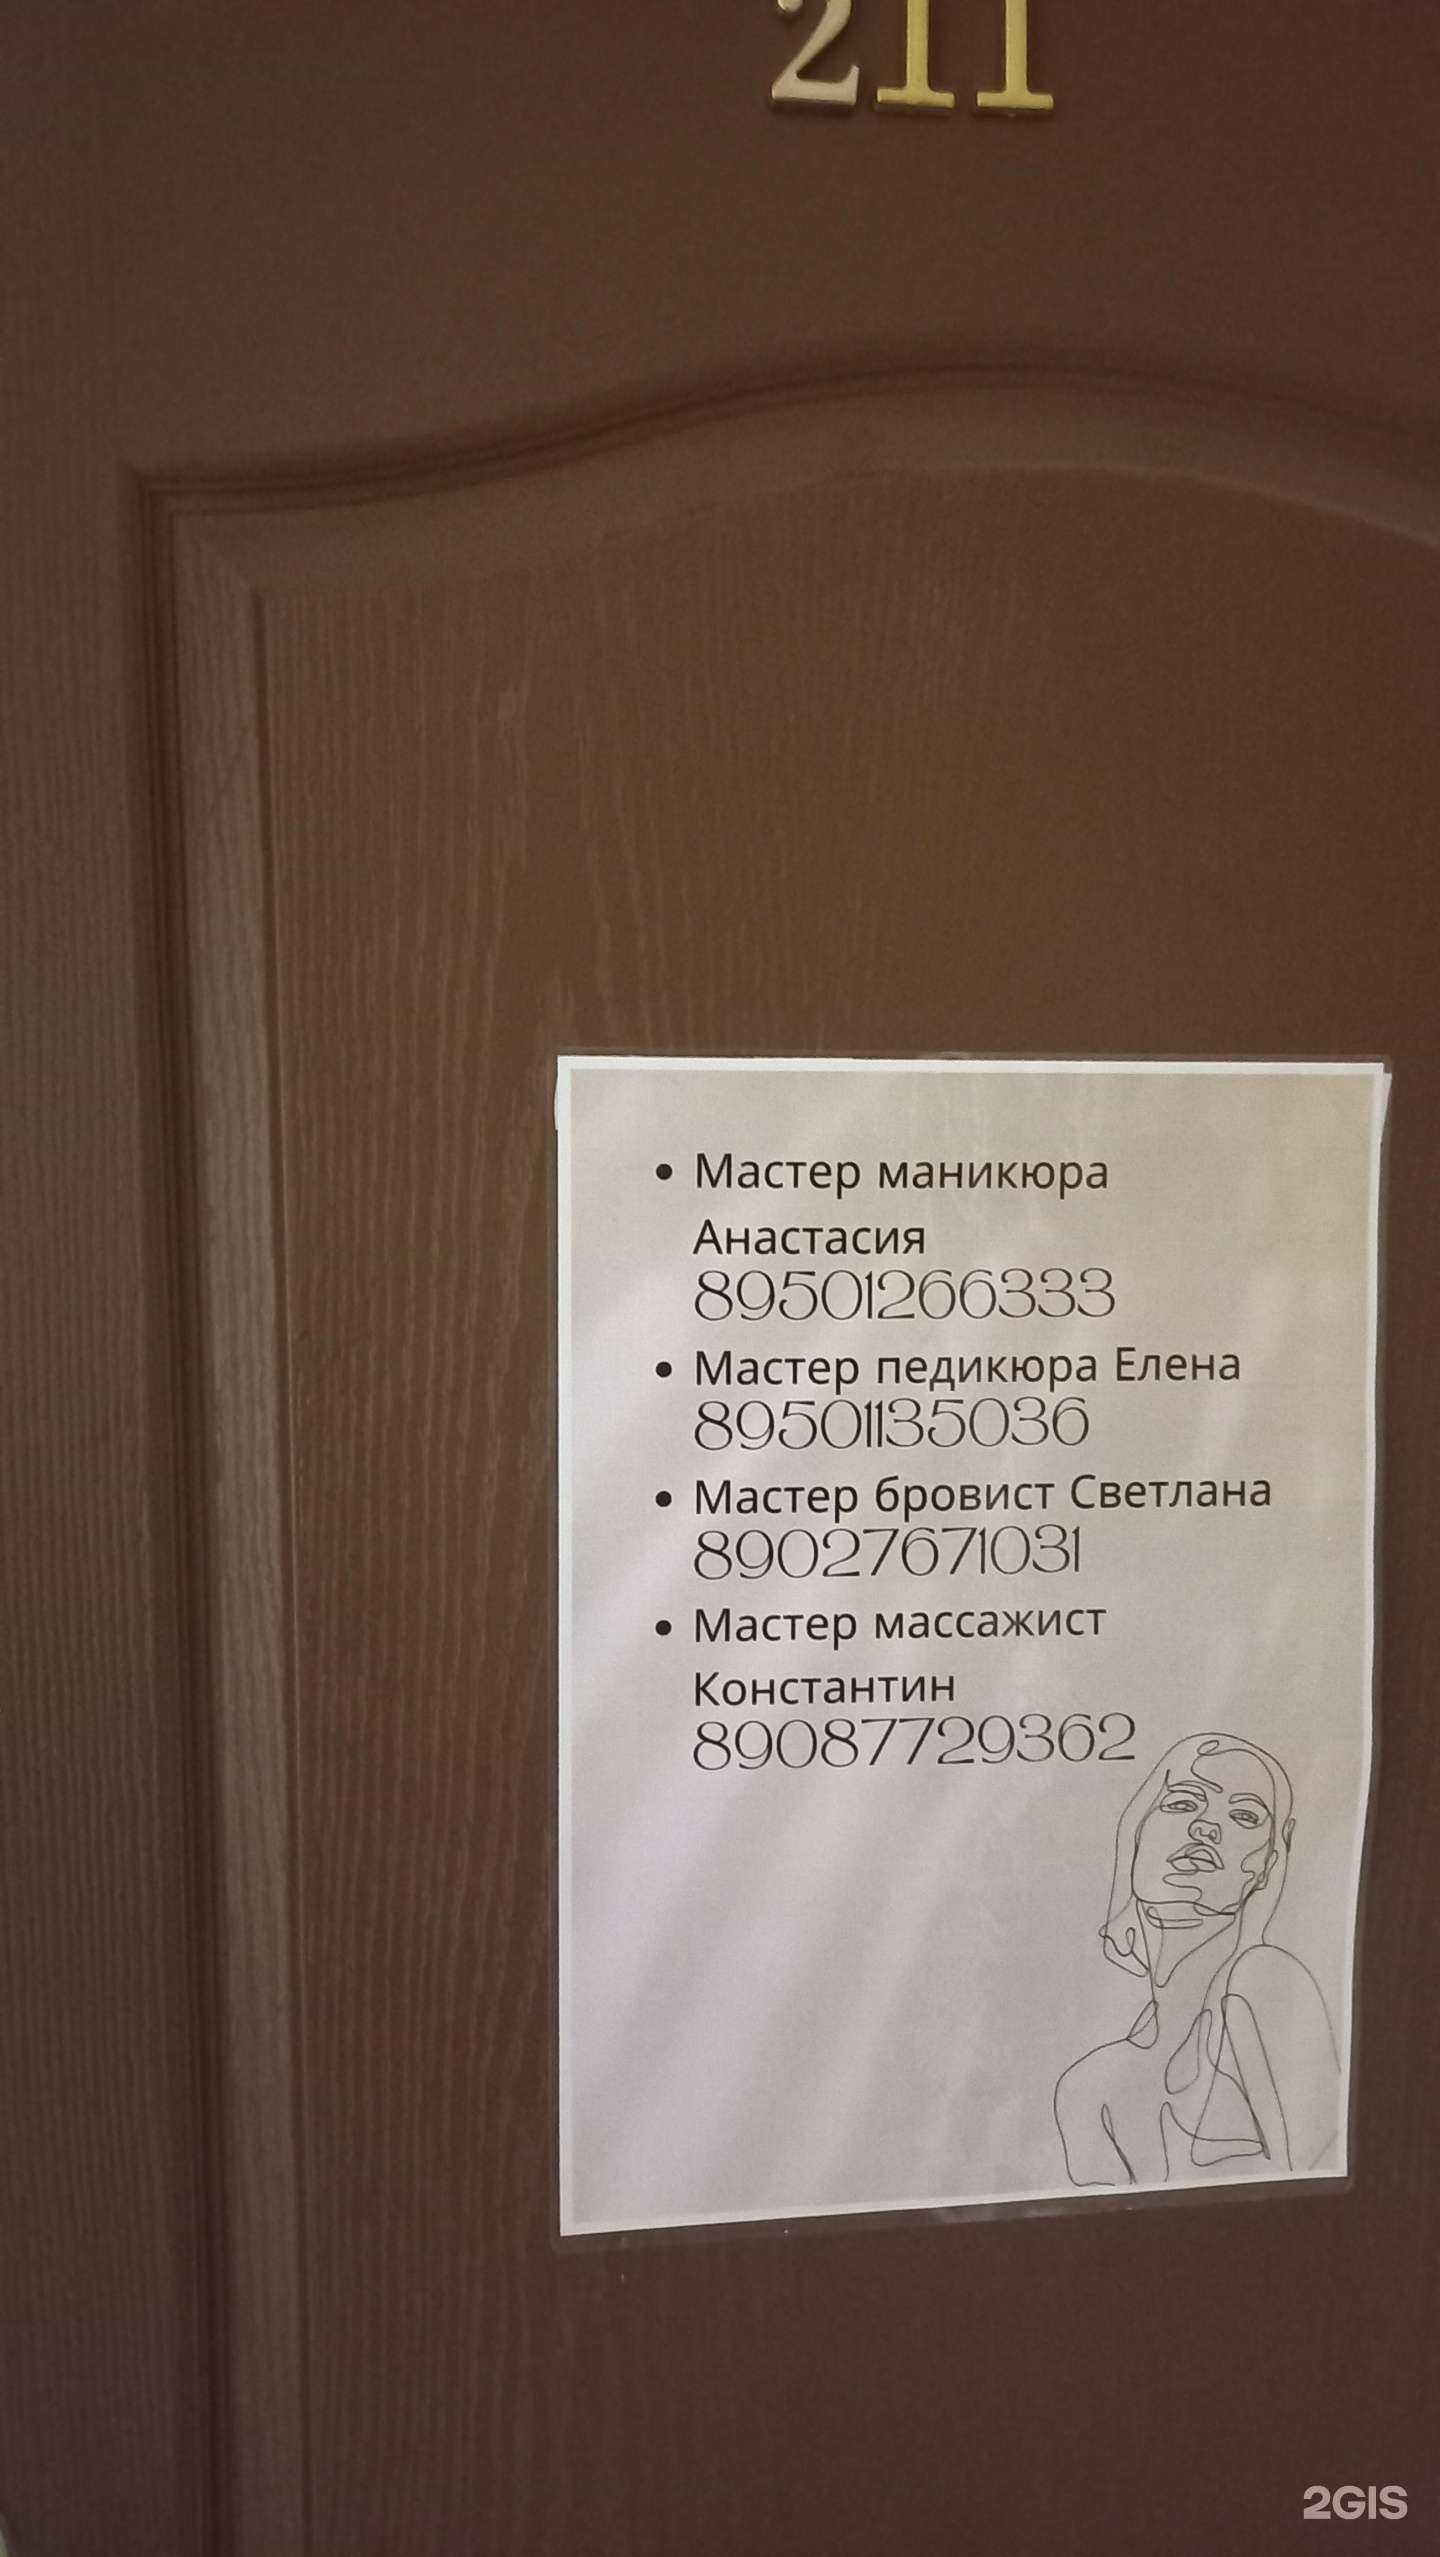 211
• Мастер маникюра
Анастасия
89501266333
• Мастер педикюра Елена
89501135036
• Мастер бровист Светлана
89027671031
• Мастер массажист
Константин
89087729362
2GIS